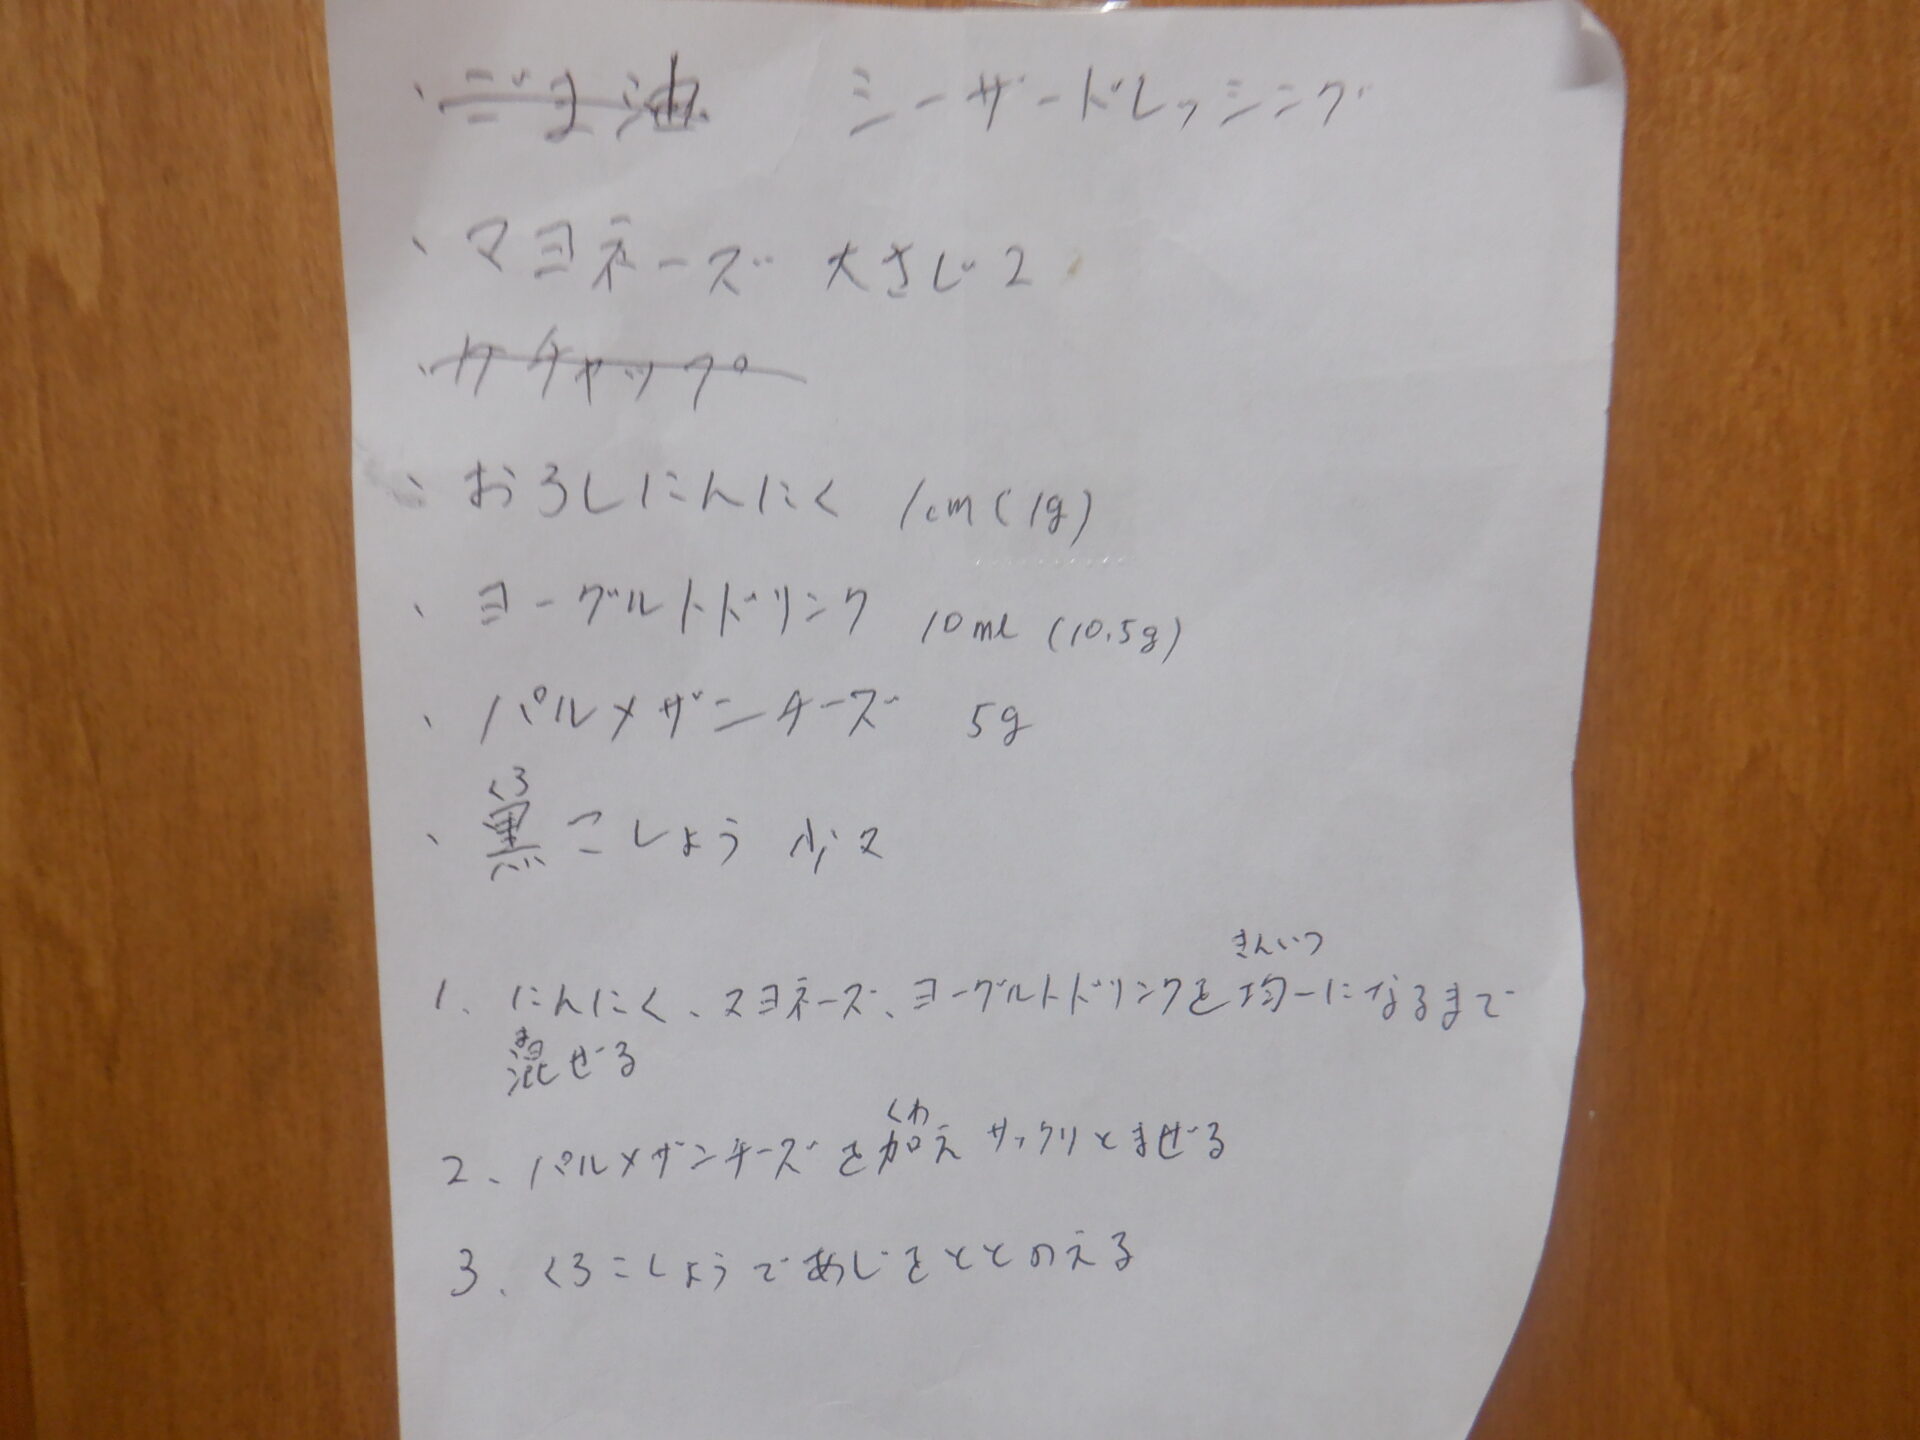 ・ごま油 シーザードレッシング
・マヨネーズ 大さじ2
・ケチャップ
・おろしにんにく 1cm(1g)
・ヨーグルトドリンク 10ml (10.5g)
・パルメザンチーズ 5g
くろ
・黒こしょう 少々
きんいつ
1、にんにく、マヨネーズ、ヨーグルトドリンクを均一になるまで
ま
混ぜる
くわ
2、パルメザンチーズを加えサックリとまぜる
3、くろこしょうであじをととのえる